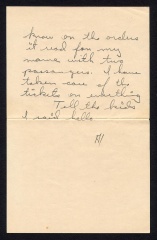 know on the orders
it read for my
name with two
passengers. I have
taken care of the
tickets on
Tell the kids
I said hello